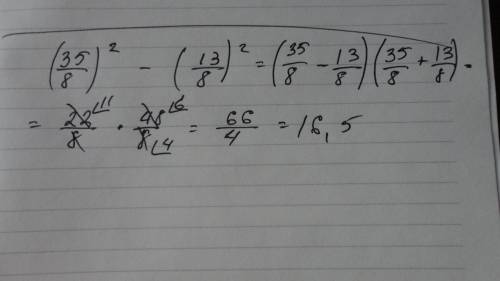 (35/8)² - (13/8)² = (35/8 - 13/8)(35/8 + 13/8).
= 22⌊11/8 · 48⌊6/8⌊4 = 66/4 = 16,5